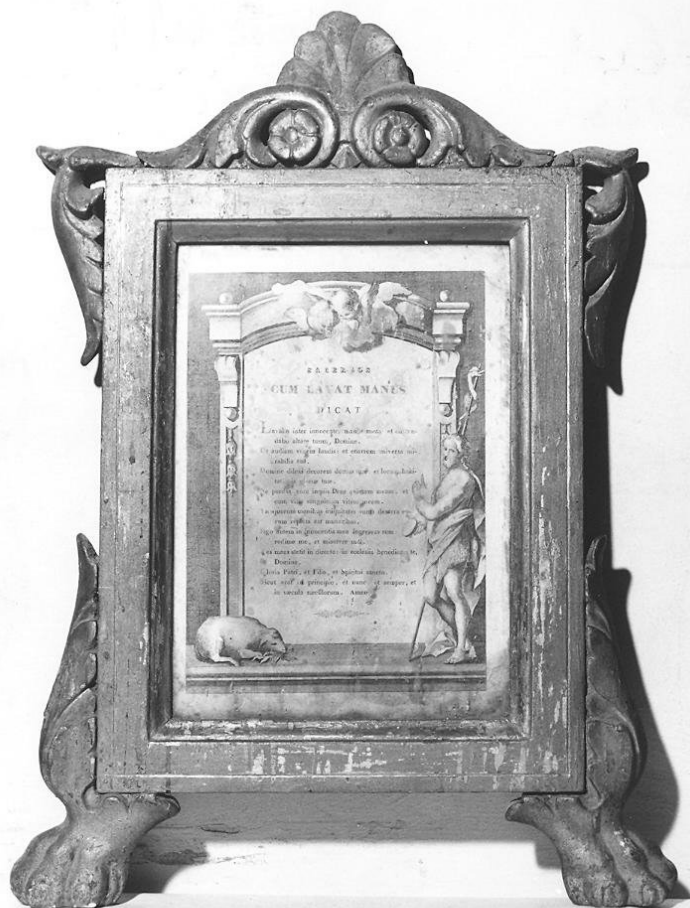 SACERDOS
CUM LAVAT MANUS
DICAT
Lavabo inter innocentes manus meas, et circum-
dabo altare tuum, Domine.
Ut audiam vocem laudis, et enarrem universa mi-
rabilia tua.
Domine dilexi decorem domus tuæ, et locum habi-
tationis gloriæ tuæ.
Ne perdas cum impiis Deus animam meam, et
cum viris sanguinum vitam meam.
In quorum manibus iniquitates sunt: dextera eo-
rum repleta est muneribus.
Ego autem in innocentia mea ingressus sum
redime me, et miserere mei.
Pes meus stetit in directo: in ecclesiis benedicam te,
Domine.
Gloria Patri, et Filio, et Spiritui sancto.
Sicut erat in principio, et nunc, et semper, et
in sæcula sæculorum. Amen.